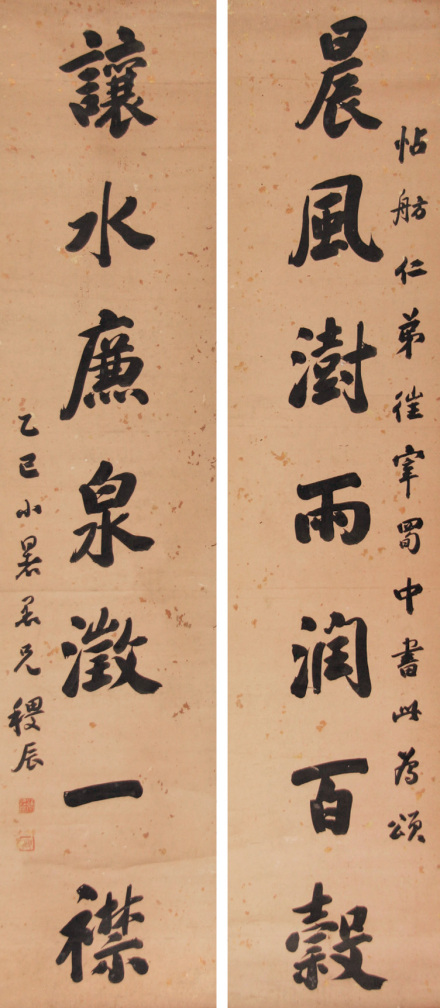 帖舫仁弟往宰蜀中書此為頌
晨風澍雨潤百穀
讓水廉泉澂一襟
乙巳小暑愚兄稷辰